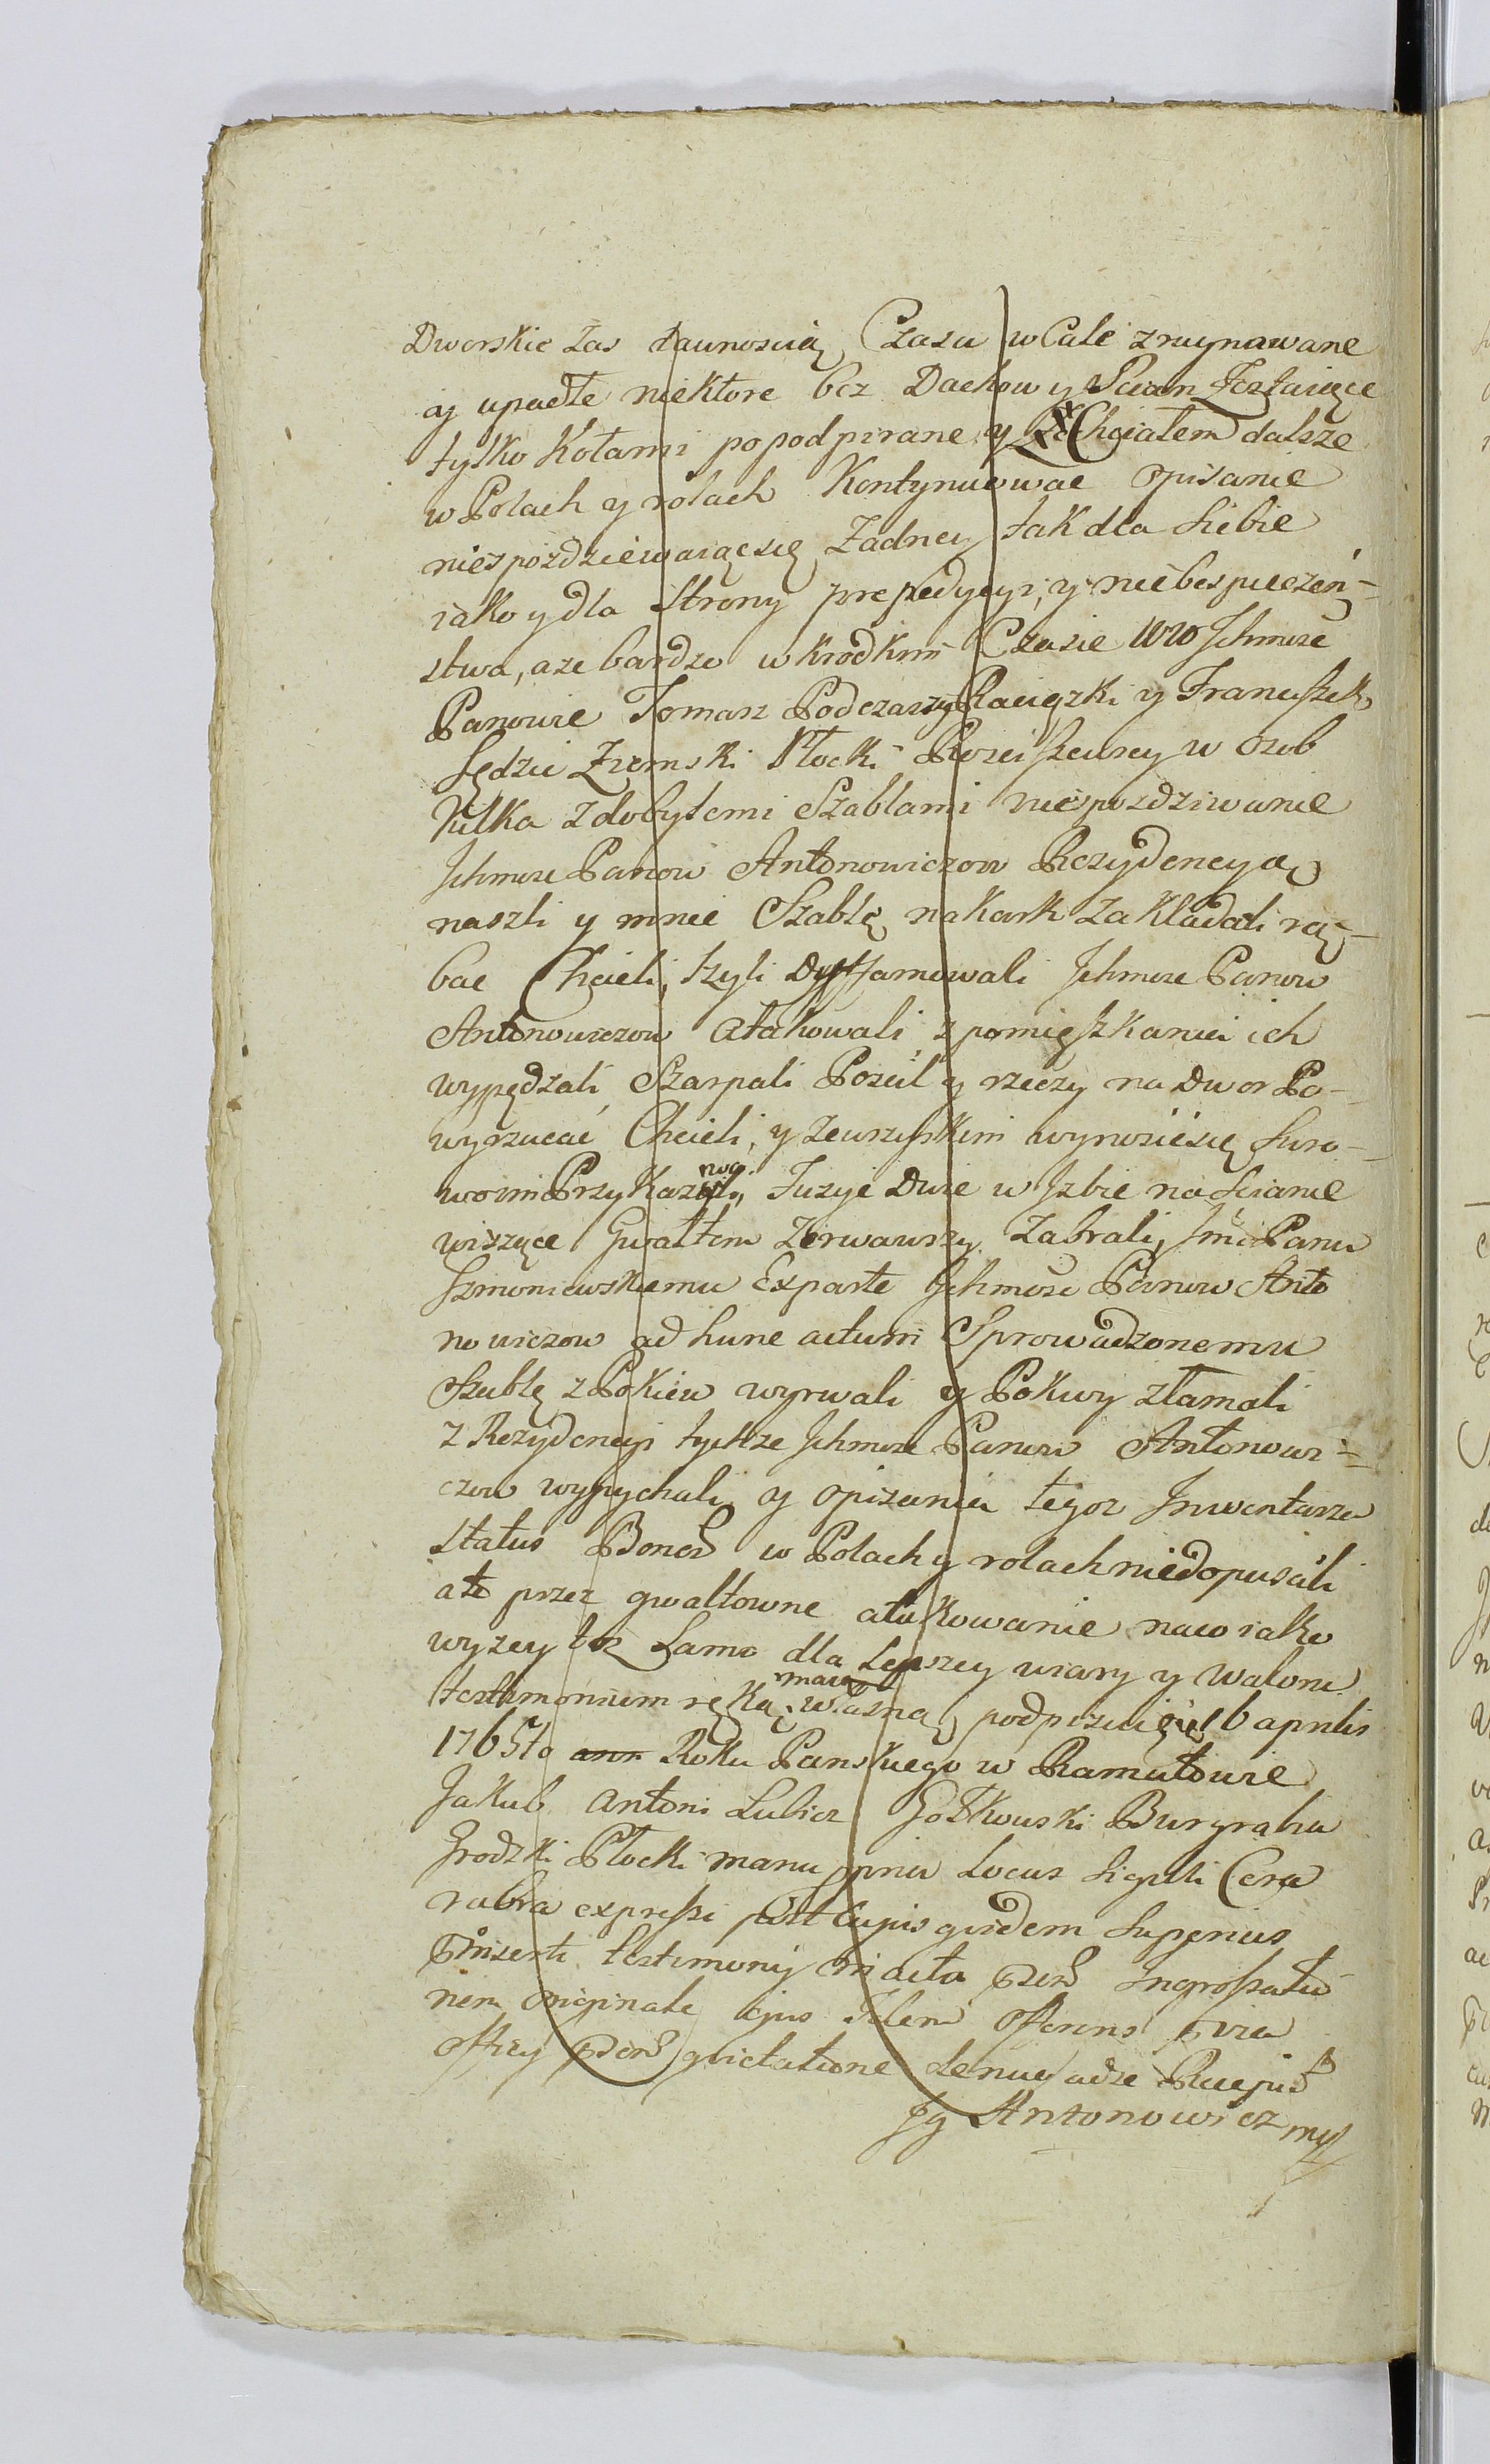 Dworskie zas dawnoscią Czasu w Cale zruynawane
y upadłe niektore bez Dachow y Scian
tylko Kołami popodpirane, y Chciałem dalsze
w Polach y rolach Kontynuowac opisanie
niespodziewaiącsię Zadney tak dla Siebie
iako y dla Strony prepedycyi, y niebespieczeń-
stwa, aze bardzo w krodkim Czasie WW Ichmsze
Panowie Tomasz Podczaszy Raciązki y Franciszek
Sędzia Ziemski Płocki Rosciszewscy w osob
Kilka z dobytemi Szablami niespodziwanie
Ichmsze Panow Antonowiczow Rezydencyą
naszli y mnie Szablę na kark zakładali rą-
bac Chcieli, lzyli Dyffamowali Ichmsze Panow
Antonowiczow atakowali z pomięszkania ich
wypędzali Szarpali Posciel y rzeczy na Dwor Po-
wyrzucać Chcieli, y zewszystkim wynosićsię Suro-
wo im Przykazali, Fuzye Dwie w Izbie na Scianie
wiszące Gwałtem Zerwawszy zabrali, Jmci Panu
Szmoniewskiemu Exparte Ichmsze Panow Anto
nowiczow ad hunc actum Sprowadzonemu
Szablę z Pokiew wyrwali y Pokwy złamali
z Rezydencyi tychze Ichmsze Panow Antonowi-
czow wypychali, y opisania tegoz Inwentarza
status Bonor w Polach y rolach niedopuscili
a to przez gwałtowne atakowanie naco iako
wyzey toz Samo dla Lepszey wiary y waloru
testimonium ręką moią własną podpisuię się 16 aprilis
1765to ann Roku Panskiego w Ramutowie
Jakub Antoni Lubicz Gotkowski Burgrabia
Grodzki Płocki manu ppria Locus Sigilli Cera
rubra expressi post Cujus quidem Superius
Inserti testimonij in acta pnr Ingrossatio
nem originale ejus Idem offerens
officij pnr quietatione de
Jg Antonowicz mp